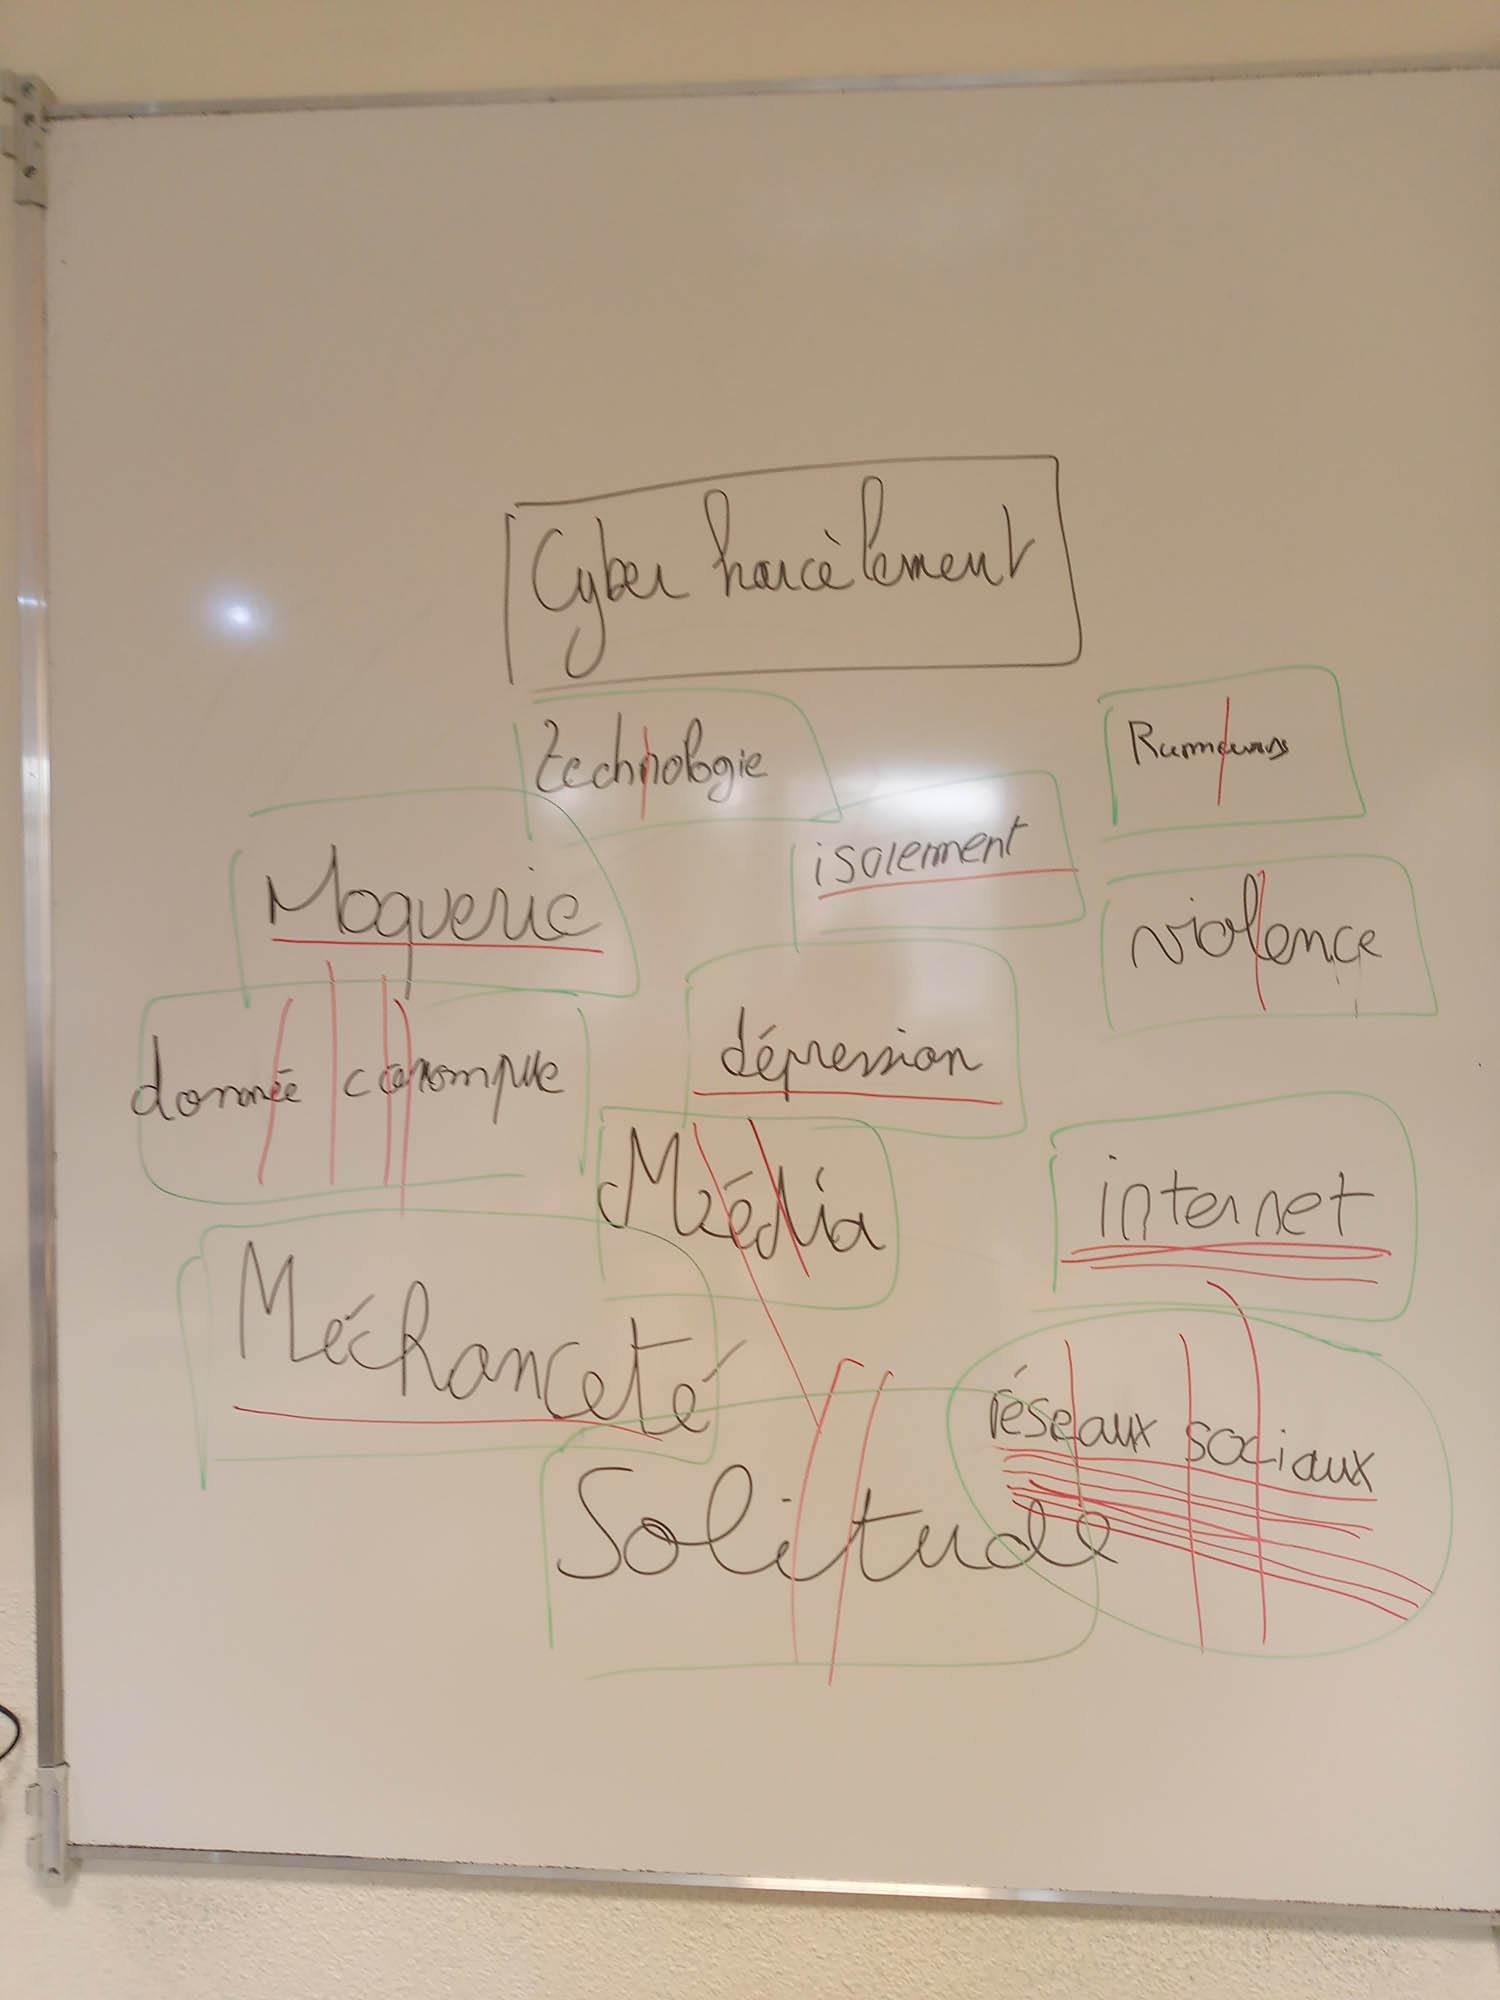 Cyber harcèlement
technologie
Rumeurs
isolement
Moquerie
violence
dépression
donnée corrompue
Média
internet
Méchanceté
réseaux sociaux
Solitude